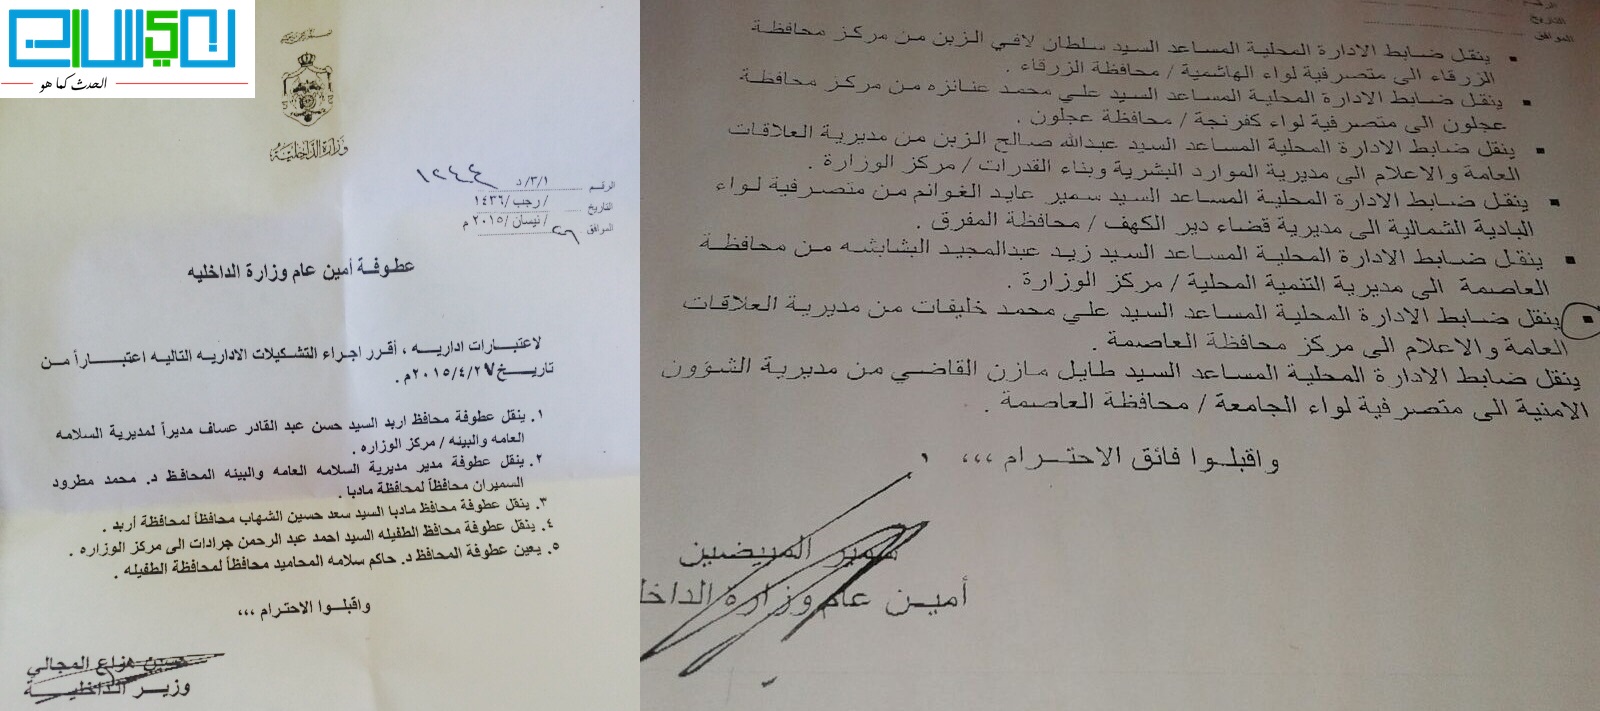 نيسان
الحدث كما هو
وزارة الداخلية
الرقم د/٣/١ ١٢٤٠٤
التاريخ / رجب/١٤٣٦
الموافق ٢٦ / نيسان /٢٠١٥ م
عطوفة أمين عام وزارة الداخليه
لاعتبارات اداريه ، أقرر اجراء التشكيلات الاداريه التاليه اعتباراً من
تاريخ ٢٠١٥/٤/٢٧م .
١. ينقل عطوفة محافظ اربد السيد حسن عبد القادر عساف مديراً لمديرية السلامه
العامه والبيئه / مركز الوزاره .
٢. ينقل عطوفة مدير مديرية السلامه العامه والبيئه المحافظ د. محمد مطرود
السميران محافظاً لمحافظة مادبا .
٣. ينقل عطوفة محافظ مادبا السيد سعد حسين الشهاب محافظاً لمحافظة أربد .
٤. ينقل عطوفة محافظ الطفيله السيد احمد عبد الرحمن جرادات الى مركز الوزاره .
٥. يعين عطوفة المحافظ د. حاكم سلامه المحاميد محافظاً لمحافظة الطفيله .
واقبلوا الاحترام ،،،
حسين هزاع المجالي
وزير الداخلية
الرقم
التاريخ
الموافق
▪ ينقل ضابط الادارة المحلية المساعد السيد سلطان لافي الزبن من مركز محافظة
الزرقاء الى متصرفية لواء الهاشمية / محافظة الزرقاء .
▪ ينقل ضابط الادارة المحلية المساعد السيد علي محمد عنانزه من مركز محافظة
عجلون الى متصرفية لواء كفرنجة / محافظة عجلون .
▪ ينقل ضابط الادارة المحلية المساعد السيد عبدالله صالح الزبن من مديرية العلاقات
العامة والاعلام الى مديرية الموارد البشرية وبناء القدرات / مركز الوزارة .
▪ ينقل ضابط الادارة المحلية المساعد السيد سمير عايد الغوانم من متصرفية لواء
البادية الشمالية الى مديرية قضاء دير الكهف / محافظة المفرق .
▪ ينقل ضابط الادارة المحلية المساعد السيد زيد عبدالمجيد البشابشه من محافظة
العاصمة الى مديرية التنمية المحلية / مركز الوزارة .
▪ ينقل ضابط الادارة المحلية المساعد السيد علي محمد خليفات من مديرية العلاقات
العامة والاعلام الى مركز محافظة العاصمة .
ينقل ضابط الادارة المحلية المساعد السيد طايل مازن القاضي من مديرية الشؤون
الامنية الى متصرفية لواء الجامعة / محافظة العاصمة .
واقبلوا فائق الاحترام ،،،
سمير المبيضين
أمين عام وزارة الداخل